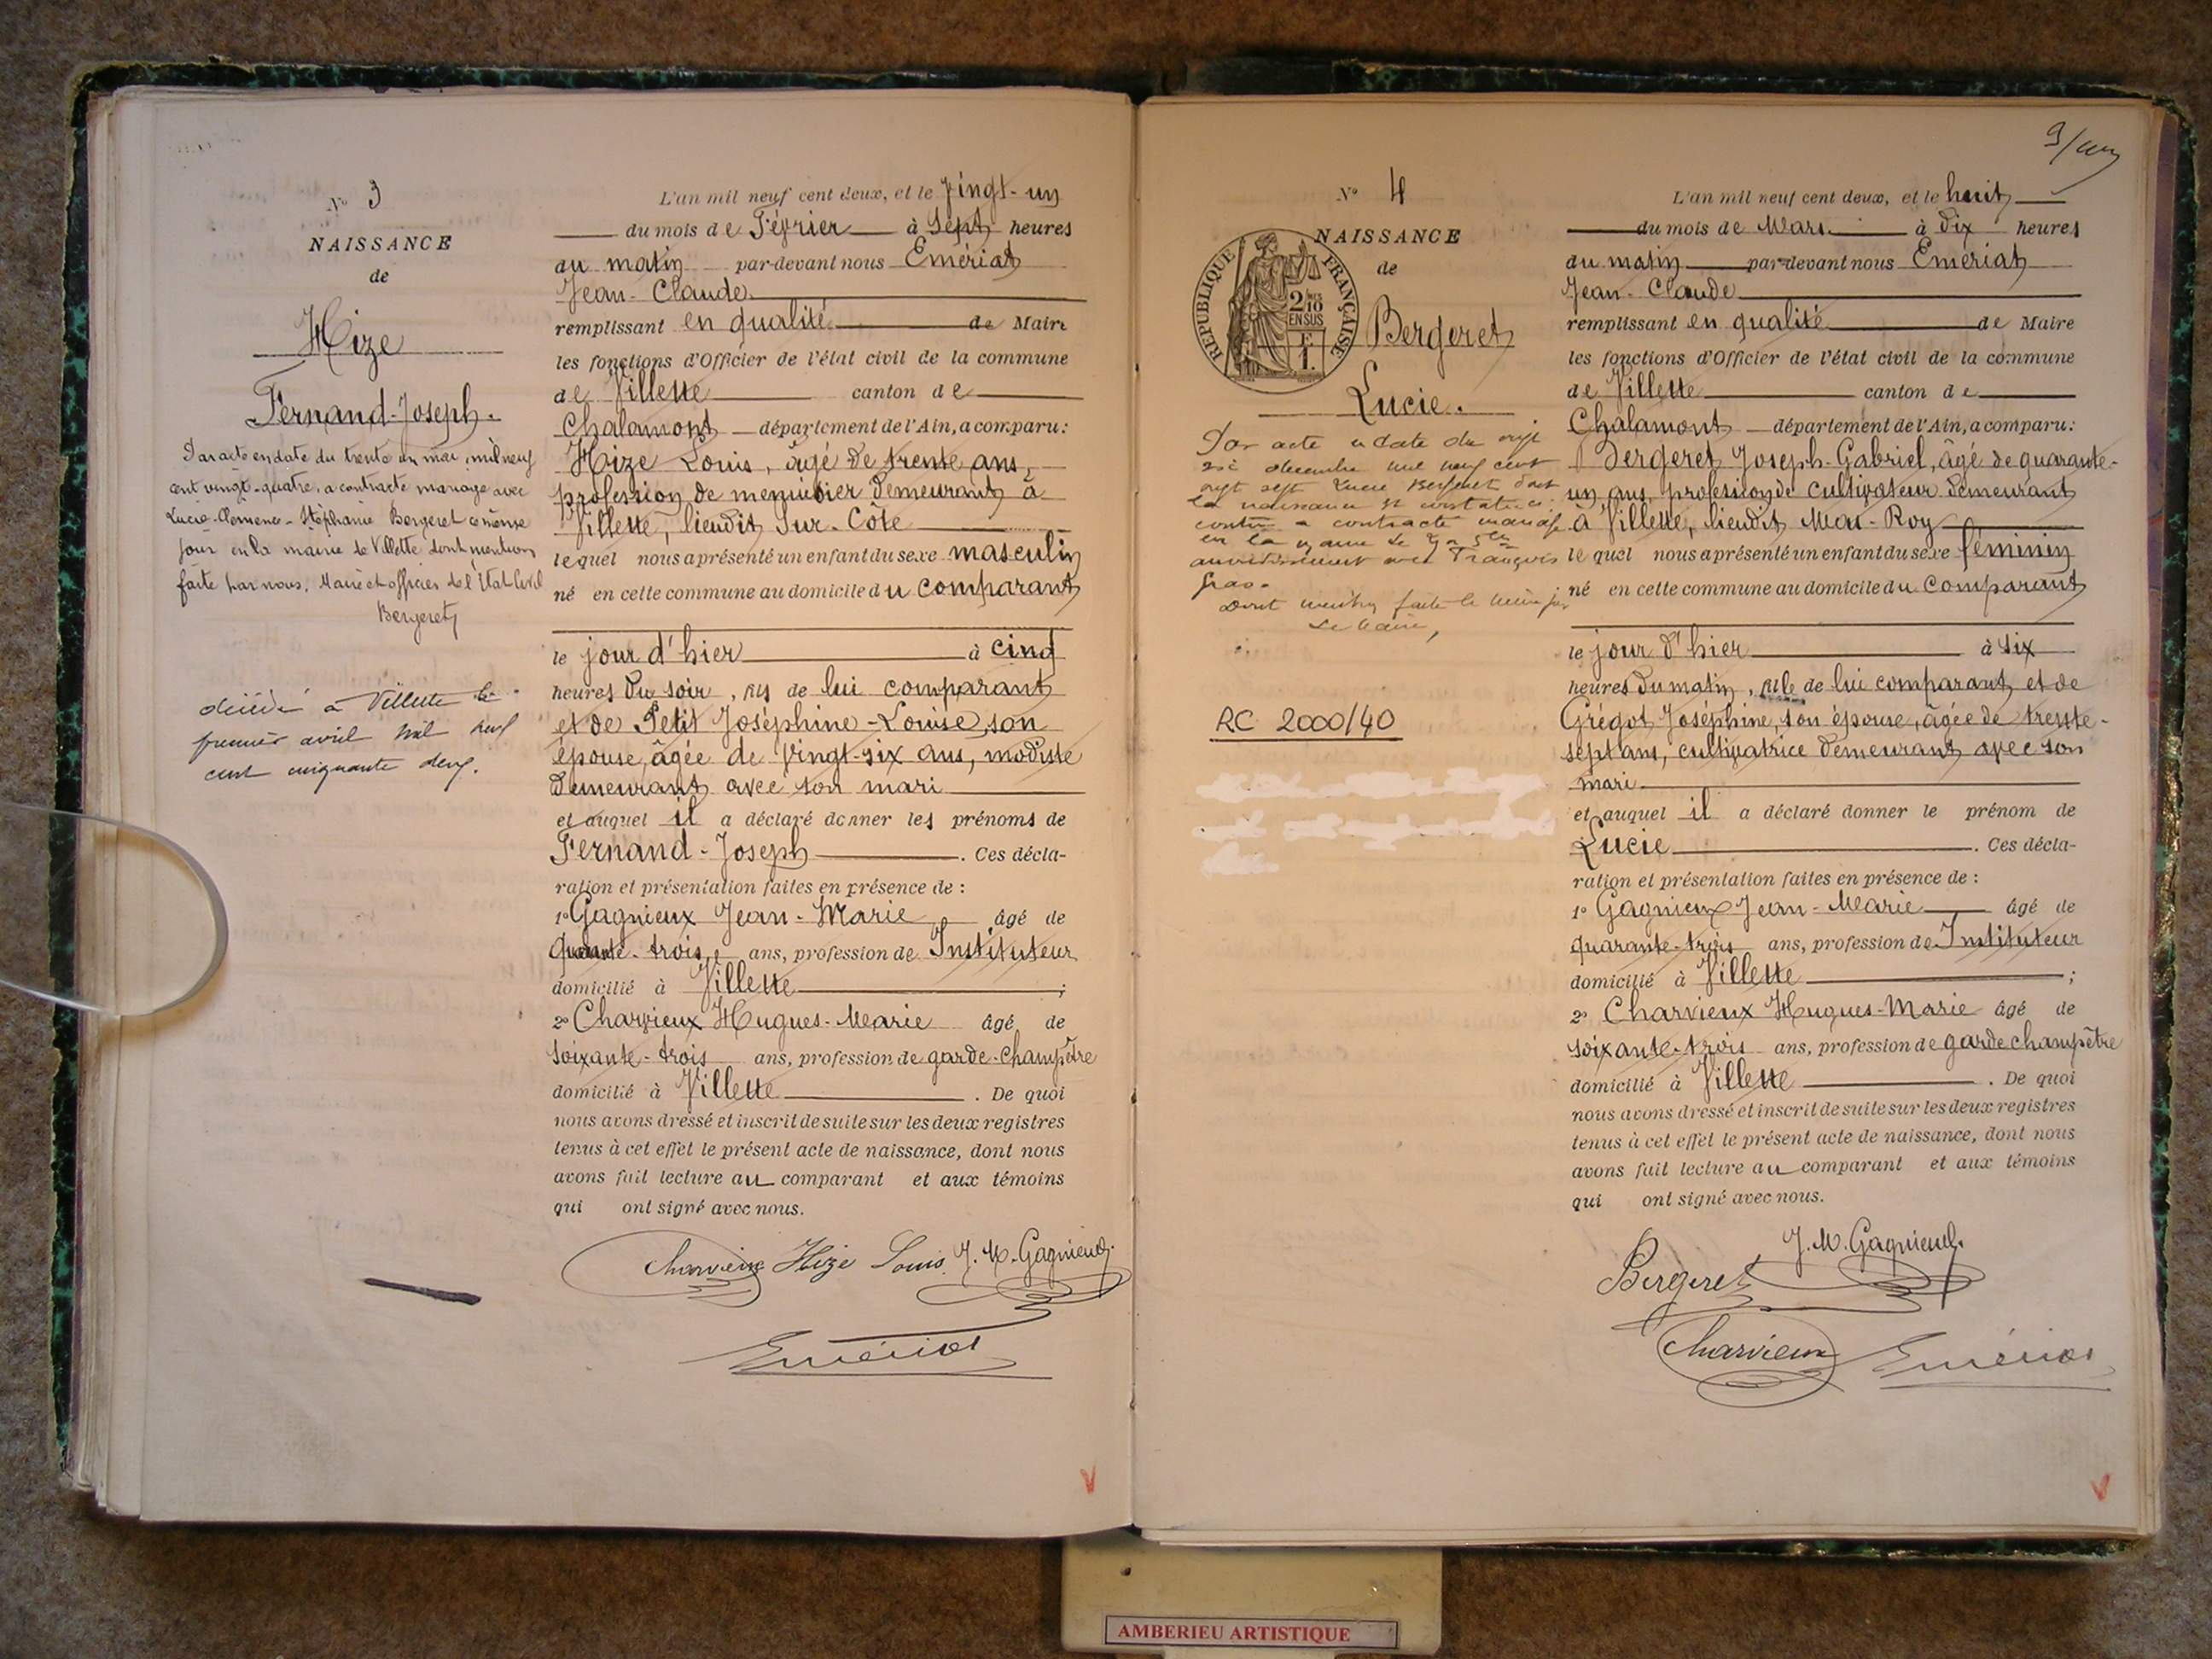 N° 3
NAISSANCE
de
Hize
Fernand-Joseph.
Par acte en date du trente un mai mil neuf
cent vingt-quatre, a contracté mariage avec
Lucie-Clémence-Stéphanie Bergeret ce même
jour en la mairie de Villette dont mention
faite par nous, Maire et officier de l'Etat Civil
Bergeret
décédé à Villette le
premier avril mil neuf
cent cinquante deux.
L'an mil neuf cent deux, et le vingt-un
du mois de Février à sept heures
du matin par-devant nous Emériat
Jean-Claude
remplissant en qualité de Maire
les fonctions d'Officier de l'état civil de la commune
de Villette canton de
Chalamont département de l'Ain, a comparu:
Hize Louis, âgé de trente ans,
profession de menuisier demeurant à
Villette, lieudit Sur-Côte
lequel nous a présenté un enfant du sexe masculin
né en cette commune au domicile du comparant
le jour d'hier à cinq
heures du soir, fils de lui comparant
et de Petit Joséphine-Louise, son
épouse, âgée de vingt-six ans, modiste
demeurant avec son mari
et auquel il a déclaré donner les prénoms de
Fernand-Joseph. Ces décla-
ration et présentation faites en présence de:
1° Gagnieux Jean-Marie âgé de
quarante-trois ans, profession de Instituteur
domicilié à Villette;
2° Charvieux Hugues-Marie âgé de
soixante-trois ans, profession de garde-champêtre
domicilié à Villette. De quoi
nous avons dressé et inscrit de suite sur les deux registres
tenus à cet effet le présent acte de naissance, dont nous
avons fait lecture au comparant et aux témoins
qui ont signé avec nous.
Charvieux Hize Louis J. M. Gagnieux
Emériat
V
9/
N° 4
NAISSANCE
de
RÉPUBLIQUE FRANÇAISE
2/10
EN SUS
1 F.
Bergeret
Lucie.
Par acte en date du vingt
six décembre mil neuf cent
vingt sept Lucie Bergeret dont
la naissance est constatée ci
contre a contracté mariage
en la mairie de
arrondissement avec François
Gras.
Dont mention faite le même jour
Le Maire,
RC 2000/40
L'an mil neuf cent deux, et le huit
du mois de Mars à dix heures
du matin par-devant nous Emériat
Jean-Claude
remplissant en qualité de Maire
les fonctions d'Officier de l'état civil de la commune
de Villette canton de
Chalamont département de l'Ain, a comparu:
Bergeret Joseph-Gabriel, âgé de quarante-
un ans, profession de cultivateur demeurant
à Villette, lieudit Mas-Roy
lequel nous a présenté un enfant du sexe féminin
né en cette commune au domicile du comparant
le jour d'hier à six
heures du matin, fille de lui comparant et de
Grégot Joséphine, son épouse, âgée de trente-
sept ans, cultivatrice demeurant avec son
mari
et auquel il a déclaré donner le prénom de
Lucie. Ces décla-
ration et présentation faites en présence de:
1° Gagnieux Jean-Marie âgé de
quarante-trois ans, profession de Instituteur
domicilié à Villette;
2° Charvieux Hugues-Marie âgé de
soixante-trois ans, profession de garde champêtre
domicilié à Villette. De quoi
nous avons dressé et inscrit de suite sur les deux registres
tenus à cet effet le présent acte de naissance, dont nous
avons fait lecture au comparant et aux témoins
qui ont signé avec nous.
J. M. Gagnieux
Bergeret
Charvieux Emériat
V
AMBERIEU ARTISTIQUE